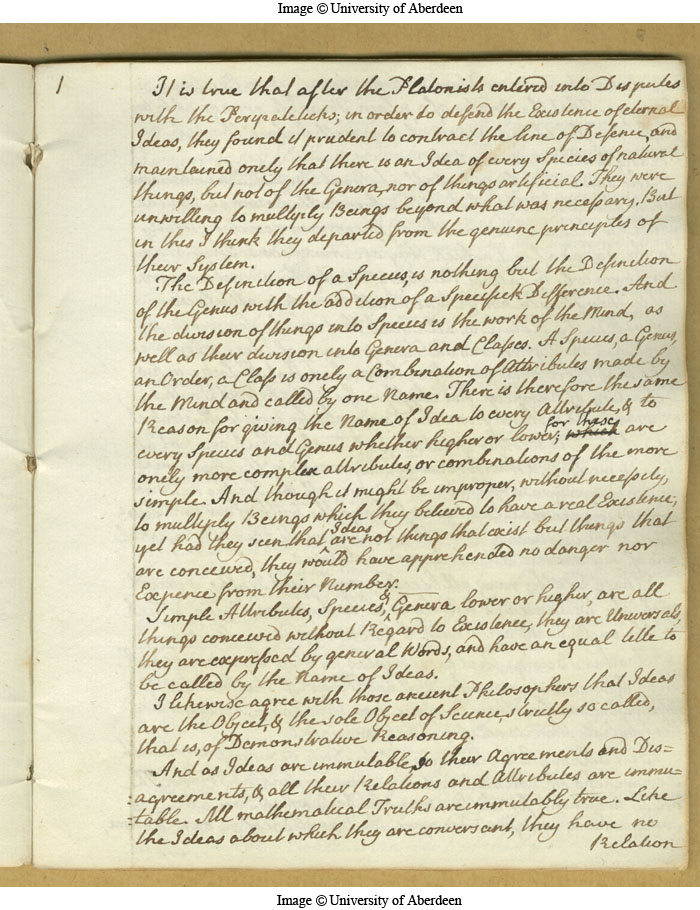 Image © University of Aberdeen
1
It is true that after the Platonists entered into Disputes
with the Peripateticks, in order to defend the Existence of eternal
Ideas, they found it prudent to contract the line of Defence, and
maintained onely that there is an Idea of every Species of natural
things, but not of the Genera, nor of things artificial. They were
unwilling to multiply Beings beyond what was necessary. But
in this I think they departed from the genuine principles of
their System.
The Definition of a Species, is nothing but the Definition
of the Genus with the addition of a Specifick Difference. And
the division of things into Species is the work of the Mind, as
well as their division into Genera and Classes. A Species, a Genus,
an Order, a Class is onely a Combination of Attributes made by
the Mind and called by one Name. There is therefore the same
Reason for giving the Name of Idea to every Attribute, & to
for these
every Species and Genus whether higher or lower, which are
onely more complex attributes, or combinations of the more
simple. And though it might be improper, without necessity,
to multiply Beings which they believed to have a real Existence,
Ideas
yet had they seen that are not things that exist but things that
are conceived, they would have apprehended no danger nor
Expence from their Number.
Simple Attributes, Species, & Genera lower or higher, are all
things conceived without Regard to Existence, they are Universals,
they are expressed by general Words, and have an equal title to
be called by the Name of Ideas.
I likewise agree with those ancient Philosophers that Ideas
are the Object, & the sole Object of Science, strictly so called,
that is, of Demonstrative Reasoning.
And as Ideas are immutable, so their Agreements and Dis=
agreements, & all their Relations and Attributes are immu=
=table. All mathematical Truths are immutably true. Like
the Ideas about which they are conversant, they have no
Relation
Image © University of Aberdeen